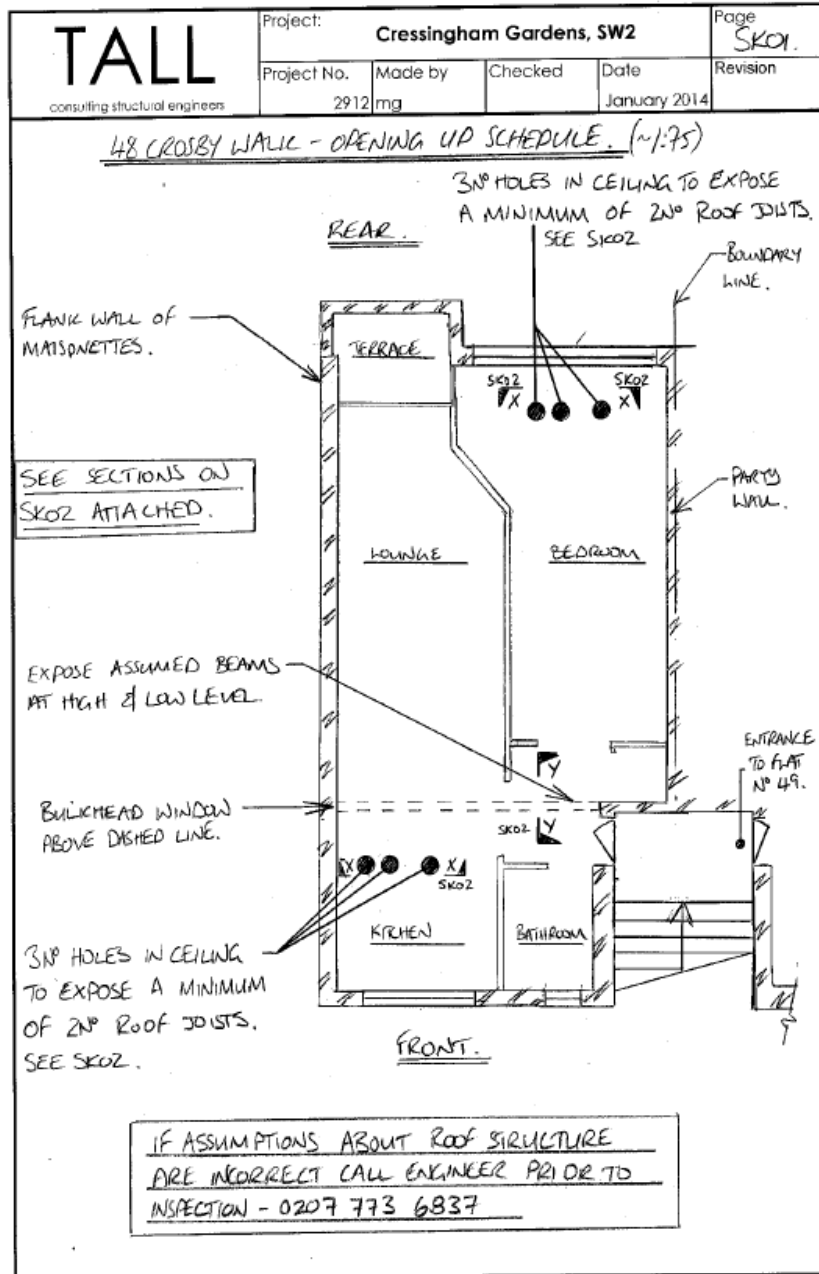 TALL
consulting structural engineers
Project:
Cressingham Gardens, SW2
Page
SK01.
Project No.
2912
Made by
mg
Checked
Date
January 2014
Revision
48 CROSBY WALK - OPENING UP SCHEDULE. (~1:75)
3Nº HOLES IN CEILING TO EXPOSE
A MINIMUM OF 2Nº ROOF JOISTS.
SEE SK02
REAR.
BOUNDARY
LINE.
FLANK WALL OF
MAISONETTES.
TERRACE
SK02
X
SK02
X
SEE SECTIONS ON
SK02 ATTACHED.
PARTY
WALL.
LOUNGE
BEDROOM
EXPOSE ASSUMED BEAMS
AT HIGH & LOW LEVEL.
ENTRANCE
TO FLAT
Nº 49.
Y
BULKHEAD WINDOW
ABOVE DASHED LINE.
SK02
Y
X
X
SK02
KITCHEN
BATHROOM
3Nº HOLES IN CEILING
TO EXPOSE A MINIMUM
OF 2Nº ROOF JOISTS.
SEE SK02.
FRONT.
IF ASSUMPTIONS ABOUT ROOF STRUCTURE
ARE INCORRECT CALL ENGINEER PRIOR TO
INSPECTION - 0207 773 6837